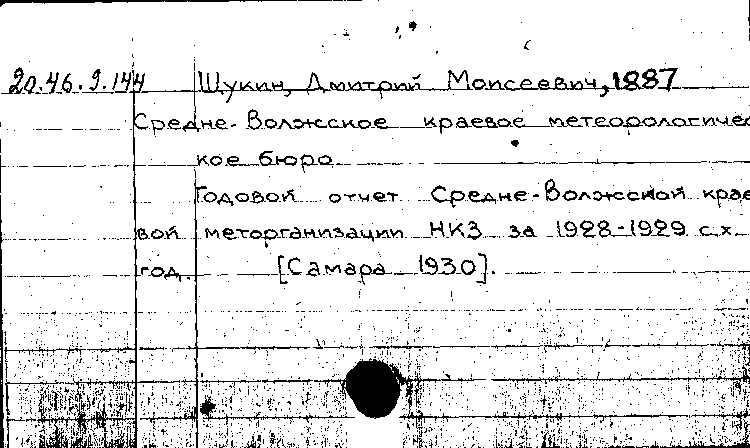 20.46.9.144 Щукин, Дмитрий Моисеевич, 1887
Средне-Волжское краевое метеорологичес
кое бюро.
Годовой отчет Средне-Волжской крае
вой меторганизации НКЗ за 1928-1929 с.х.
год. [Самара 1930].